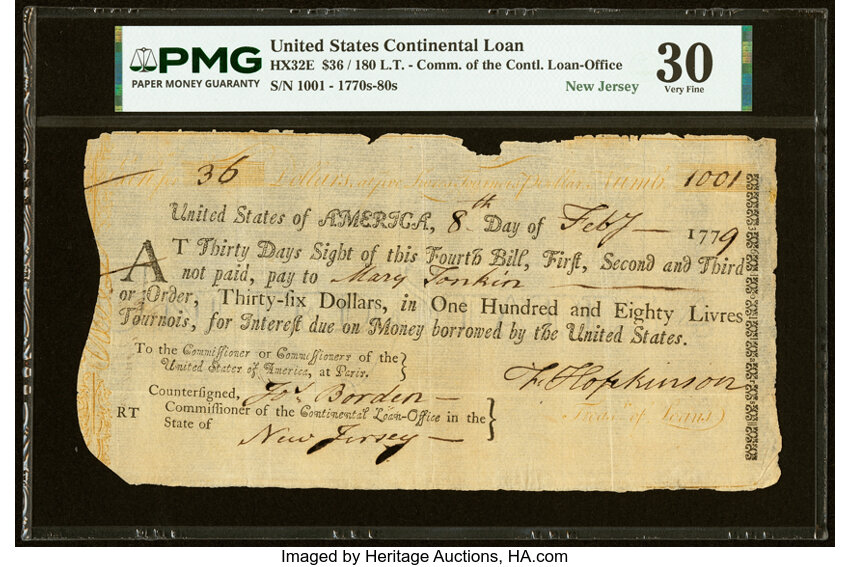 PMG
PAPER MONEY GUARANTY
United States Continental Loan
HX32E $36 / 180 L.T. - Comm. of the Contl. Loan-Office
S/N 1001 - 1770s-80s
New Jersey
30
Very Fine
36 Dollars, Numb. 1001
United States of AMERICA, 8th Day of Feby 1779
AT Thirty Days Sight of this Fourth Bill, First, Second and Third
not paid, pay to Mary Tonkin
or Order, Thirty-six Dollars, in One Hundred and Eighty Livres
Tournois, for Interest due on Money borrowed by the United States.
To the Commissioner or Commissioners of the
United States of America, at Paris.
Countersigned, Jos. Borden
F. Hopkinson
RT Commissioner of the Continental Loan-Office in the
Treasr. of Loans
State of New Jersey
Imaged by Heritage Auctions, HA.com